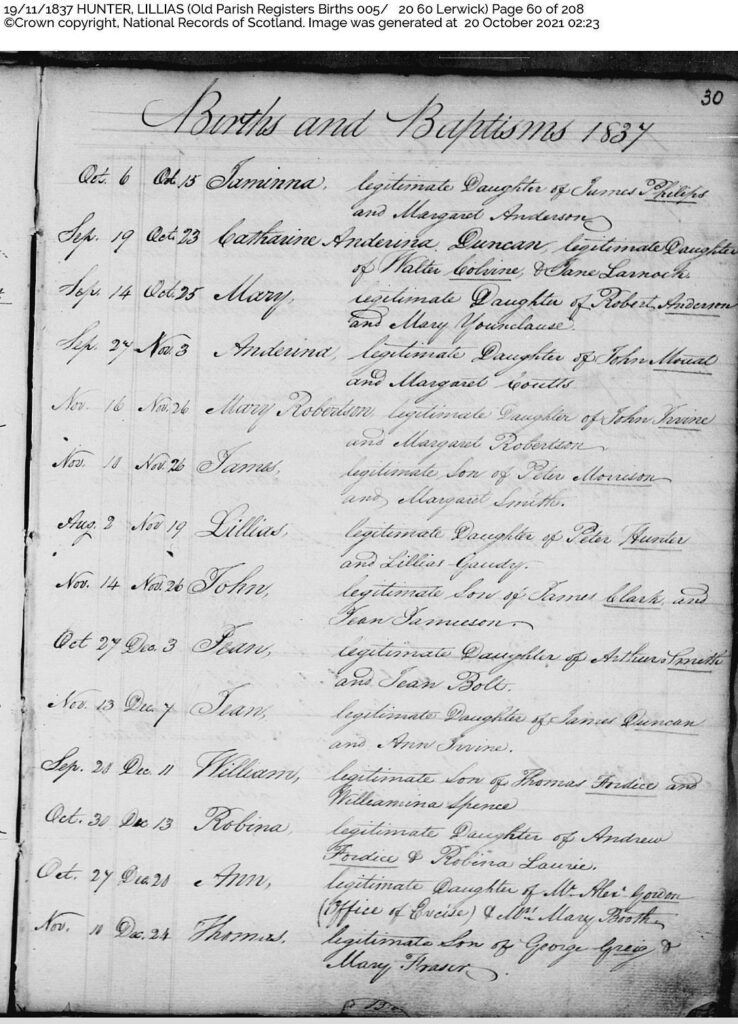 19/11/1837 HUNTER, LILLIAS (Old Parish Registers Births 005/ 20 60 Lerwick) Page 60 of 208
©Crown copyright, National Records of Scotland. Image was generated at 20 October 2021 02:23
30
Births and Baptisms 1837
Oct. 6 Oct. 15 Jaminna, legitimate Daughter of James Philips
and Margaret Anderson
Sep. 19 Oct. 23 Catharine Anderina Duncan, legitimate Daughter
of Walter Colvine, & Jane Larnoch.
Sep. 14 Oct. 25 Mary, legitimate Daughter of Robert Anderson
and Mary Younclause.
Sep. 27 Nov. 3 Anderina, legitimate Daughter of John Mouat
and Margaret Coutts
Nov. 16 Nov. 26 Mary Robertson legitimate Daughter of John Irvine
and Margaret Robertson
Nov. 18 Nov. 26 James, legitimate Son of Peter Morrison
and Margaret Smith.
Aug. 2 Nov 19 Lillias, legitimate Daughter of Peter Hunter
and Lillias Gaudy.
Nov. 14 Nov. 26 John, legitimate Son of James Clark and
Jean Jamieson.
Oct 27 Dec. 3 Jean, legitimate Daughter of Arthur Smith
and Jean Bolt.
Nov. 13 Dec. 7 Jean, legitimate Daughter of James Duncan
and Ann Irvine.
Sep. 20 Dec. 11 William, legitimate Son of Thomas Fordice and
Williamina Spence
Oct. 30 Dec 13 Robina, legitimate Daughter of Andrew
Fordice & Robina Laurie.
Oct. 27 Dec. 20 Ann, legitimate Daughter of Mr. Alexr. Gordon
(Office of Excise) & Mrs. Mary Booth
Nov. 10 Dec. 24 Thomas, legitimate Son of George Greig &
Mary Fraser